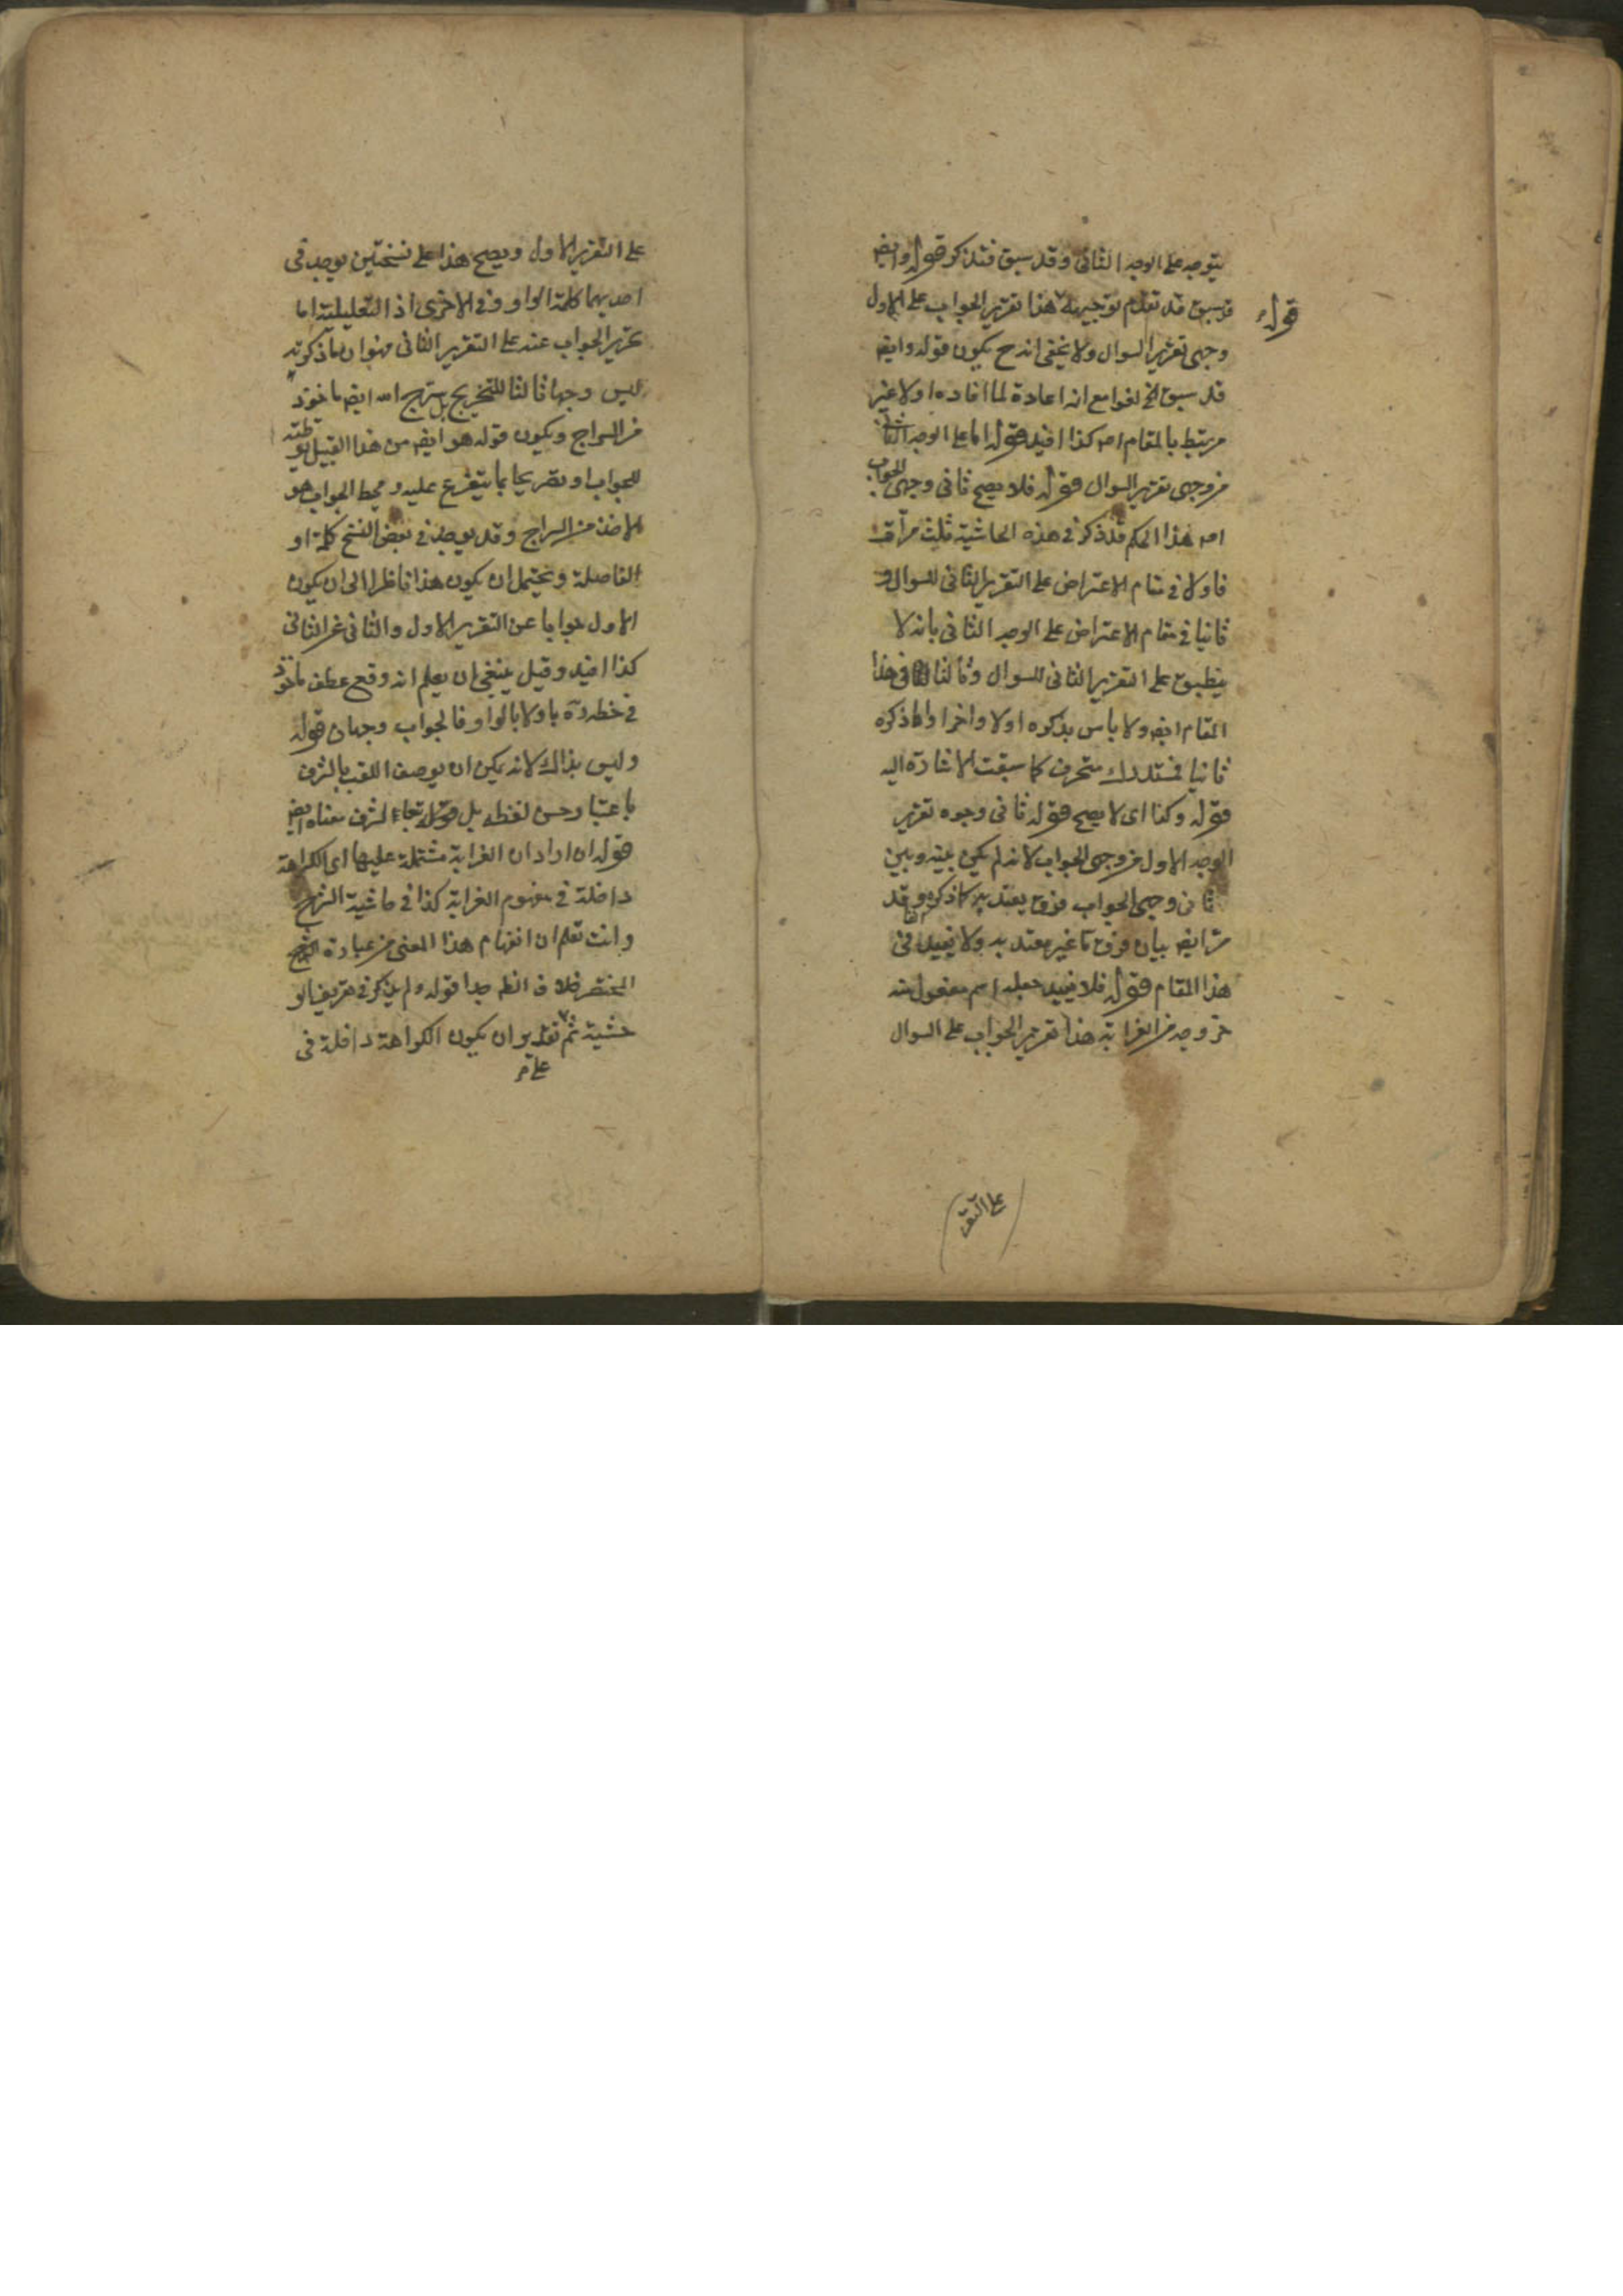 يتوجه على الوجه الثانى وقد سبق فتذكر قوله وايضا
قد سبق قد تقدم توجيهه هذا تقرير الجواب على الاول
قوله
وجهى تقرير السوال ولا يخفى انه ح يكون قوله وايضا
قد سبق الخ لغوا مع انه اعادة لما افاده اولا غير
مرتبط بالمقام اه كذا افيد قوله اما على الوجه الثانى
من وجهى تقرير السوال قوله فلا يصح ثانى وجهى الجواب
اه هذا الحكم قد ذكر فى هذه الحاشية ثلث مرات
فاولا فى مقام الاعتراض على التقرير الثانى للسوال و
ثانيا فى مقام الاعتراض على الوجه الثانى بانه لا
ينطبق على التقرير الثانى للسوال وثالثا فى هذا
المقام ايضا ولا باس بذكره اولا واخرا واما ذكره
ثانيا فمستدرك منحرف كما سبقت الاشارة اليه
قوله وكذا اى لا يصح قوله ثانى وجوه تقرير
الوجه الاول من وجهى الجواب لانه لم يكن بينه وبين
ثانى وجهى الجواب فرق يعتد به كما ذكره وقد
مر ايضا بيان فرق ما غير معتد به ولا يفيد فى
هذا المقام قوله فلا يفيد جعله اسم مفعول منه
خروجه من الغرابة هذا تقرير الجواب على السوال
على التقر
على التقرير الاول ويصح هذا على نسختين يوجد فى
احديهما كلمة الواو وفى الاخرى اذ التعليلية اما
تحرير الجواب عنه على التقرير الثانى فهو ان ما ذكرته
ليس وجها ثالثا للتخريج بل سرج الله ايضا ماخوذ
من السراج ويكون قوله هو ايضا من هذا القبيل توطئة
للجواب او تصريحا بما يتفرع عليه ومحط الجواب هو
الاخذ من السراج وقد يوجد فى بعض النسخ كلمة او
الفاصلة ويحتمل ان يكون هذا ناظرا الى ان يكون
الاول جوابا عن التقرير الاول والثانى عن الثانى
كذا افيد وقيل ينبغى ان يعلم انه وقع عطف ماخوذ
فى خطه ره باو لا بالواو فالجواب وجهان قوله
وليس بذاك لانه يكن ان يوصف اللقب بالشرف
باعتبار حسن لفظه بل الشرف معناه ايضا
قوله ان اراد ان الغرابة مشتملة عليها اى الكراهة
داخلة فى مفهوم الغرابة كذا فى حاشية الشرح
وانت تعلم ان انفهام هذا المعنى من عبارة الشرح
المختصر خلاف الظ جدا قوله ولم يذكر فى تعريف الو
حشية ثم تقدير ان يكون الكراهة داخلة فى
على مر